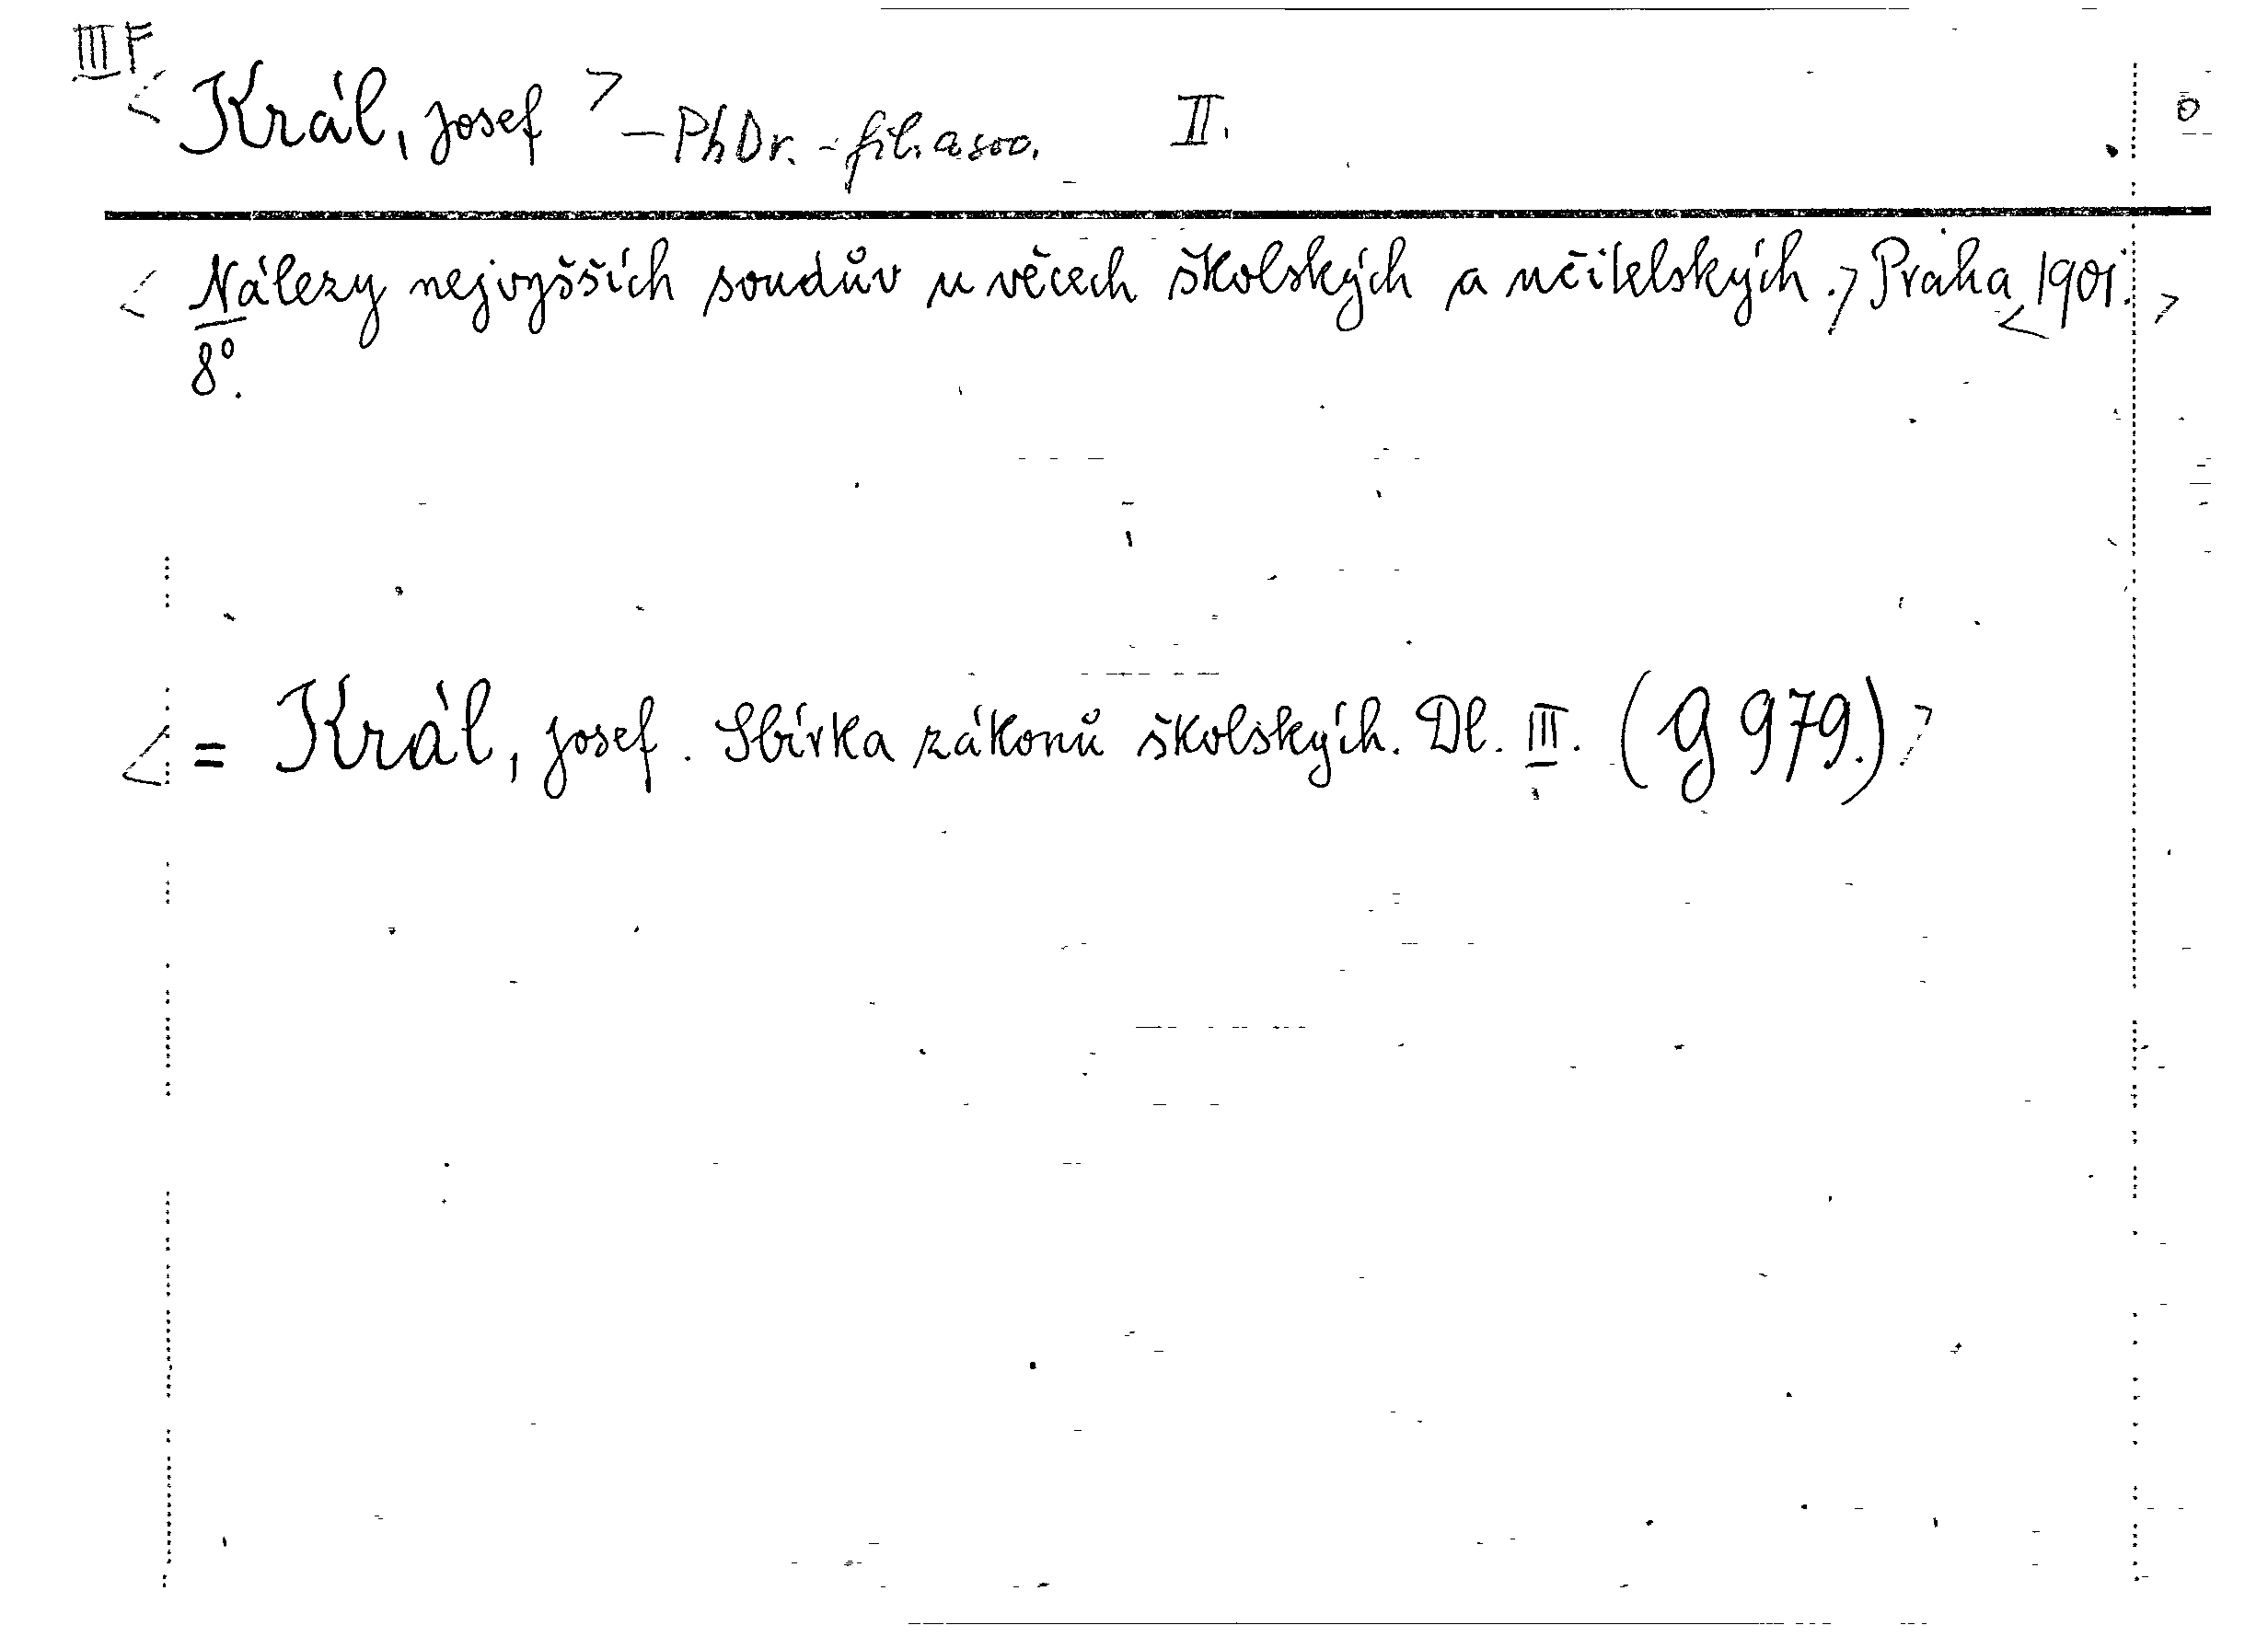 III F
< Král, Josef > – PhDr. – fil. a soc. II. o
< Nálezy nejvyšších soudův u věcech školských a učitelských. > Praha < 1901. >
8°.
< = Král, Josef. Sbírka zákonů školských. Dl. III. (G 979.) >